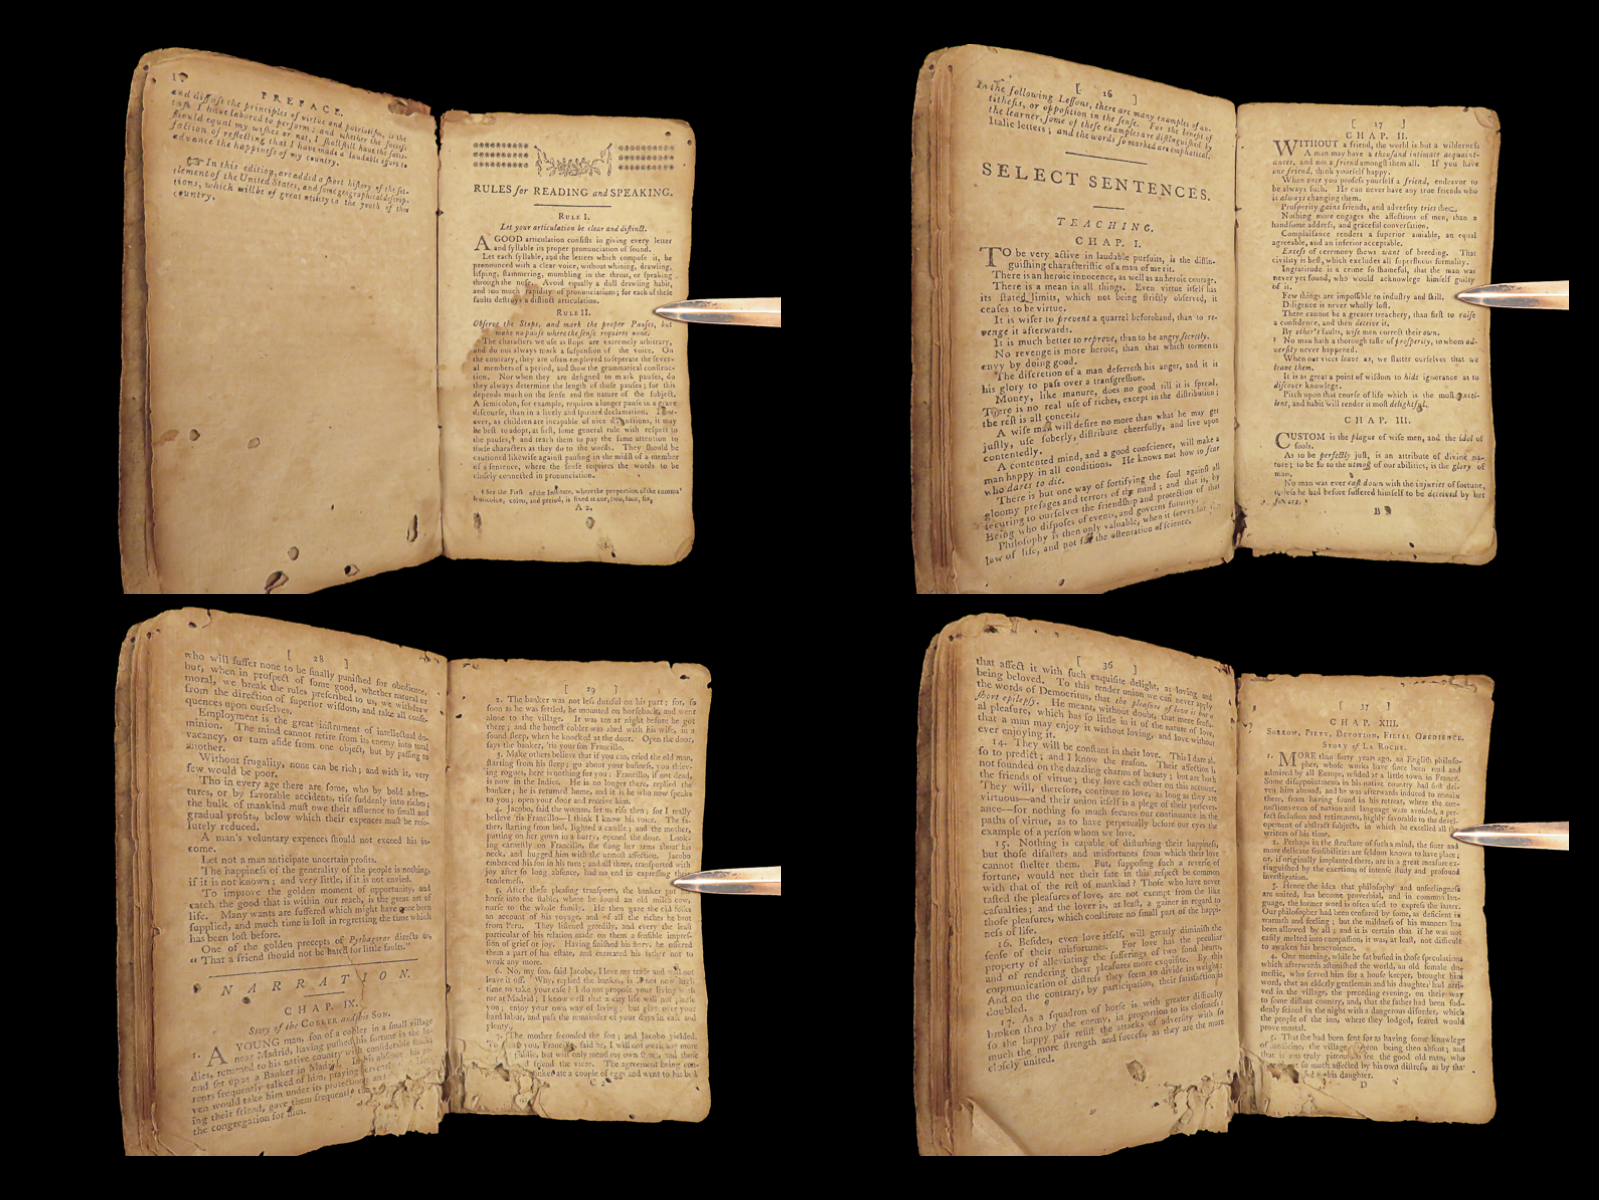 PREFACE.
and diffuse the principles of virtue and patriotism, is the
task I have labored to perform; and whether the success
should equal my wishes or not, I shall still have the satis-
faction of reflecting that I have made a laudable effort to
advance the happiness of my country.
☞ In this edition, are added a short history of the set-
tlement of the United States, and some geographical descrip-
tions, which will be of great utility to the youth of this
country.
RULES for READING and SPEAKING.
RULE I.
Let your articulation be clear and distinct.
A GOOD articulation consists in giving every letter
and syllable its proper pronunciation of sound.
Let each syllable, and the letters which compose it, be
pronounced with a clear voice, without whining, drawling,
lisping, stammering, mumbling in the throat, or speaking
through the nose. Avoid equally a dull drawling habit,
and too much rapidity of pronunciation; for each of these
faults destroys a distinct articulation.
RULE II.
Observe the Stops, and mark the proper Pauses, but
make no pause where the sense requires none.
The characters we use as stops are extremely arbitrary,
and do not always mark a suspension of the voice. On
the contrary, they are often employed to seperate the sever-
al members of a period, and show the grammatical construc-
tion. Nor when they are designed to mark pauses, do
they always determine the length of those pauses; for this
depends much on the sense and the nature of the subject.
A semicolon, for example, requires a longer pause in a grave
discourse, than in a lively and spirited declamation. How-
ever, as children are incapable of nice distinctions, it may
be best to adopt, at first, some general rule with respect to
the pauses,† and teach them to pay the same attention to
these characters as they do to the words. They should be
cautioned likewise against pausing in the midst of a member
of a sentence, where the sense requires the words to be
closely connected in pronunciation.
† See the First of the Institute, where the proportion of the comma
semicolon, colon, and period, is fixed at one, two, four, six,
A 2.
[ 16 ]
In the following Lessons, there are many examples of an-
tithesis, or opposition in the sense. For the benefit of
the learner, some of these examples are distinguished by
Italic letters; and the words so marked are emphatical.
SELECT SENTENCES.
TEACHING.
CHAP. I.
TO be very active in laudable pursuits, is the distin-
guishing characteristic of a man of merit.
There is an heroic innocence, as well as an heroic courage.
There is a mean in all things. Even virtue itself has
its stated limits, which not being strictly observed, it
ceases to be virtue.
It is wiser to prevent a quarrel beforehand, than to re-
venge it afterwards.
It is much better to reprove, than to be angry secretly.
No revenge is more heroic, than that which torments
envy by doing good.
The discretion of a man deferreth his anger, and it is
his glory to pass over a transgression.
Money, like manure, does no good till it is spread.
There is no real use of riches, except in the distribution;
the rest is all conceit.
A wise man will desire no more than what he may get
justly, use soberly, distribute cheerfully, and live upon
contentedly.
A contented mind, and a good conscience, will make a
man happy in all conditions. He knows not how to fear
who dares to die.
There is but one way of fortifying the soul against all
gloomy presages and terrors of the mind; and that is, by
securing to ourselves the friendship and protection of that
Being who disposes of events, and governs futurity.
Philosophy is then only valuable, when it serves for the
law of life, and not for the ostentation of science.
[ 17 ]
CHAP. II.
WITHOUT a friend, the world is but a wilderness
A man may have a thousand intimate acquaint-
ances, and not a friend amongst them all. If you have
one friend, think yourself happy.
When once you profess yourself a friend, endeavor to
be always such. He can never have any true friends who
is always changing them.
Prosperity gains friends, and adversity tries them.
Nothing more engages the affections of men, than a
handsome address, and graceful conversation.
Complaisance renders a superior amiable, an equal
agreeable, and an inferior acceptable.
Excess of ceremony shews want of breeding. That
civility is best, which excludes all superfluous formality.
Ingratitude is a crime so shameful, that the man was
never yet found, who would acknowledge himself guilty
of it.
Few things are impossible to industry and skill.
Diligence is never wholly lost.
There cannot be a greater treachery, than first to raise
a confidence, and then deceive it.
By other's faults, wise men correct their own.
No man hath a thorough taste of prosperity, to whom ad-
versity never happened.
When our vices leave us, we flatter ourselves that we
leave them.
It is as great a point of wisdom to hide ignorance as to
discover knowlege.
Pitch upon that course of life which is the most excel-
lent, and habit will render it most delightful.
CHAP. III.
CUSTOM is the plague of wise men, and the idol of
fools.
As to be perfectly just, is an attribute of divine na-
ture; to be so to the utmost of our abilities, is the glory of
man.
No man was ever cast down with the injuries of fortune,
unless he had before suffered himself to be deceived by her
favors.
B
[ 28 ]
who will suffer none to be finally punished for obedience,
but, when in prospect of some good, whether natural or
moral, we break the rules prescribed to us, we withdraw
from the direction of superior wisdom, and take all conse-
quences upon ourselves.
Employment is the great instrument of intellectual do-
minion. The mind cannot retire from its enemy into total
vacancy, or turn aside from one object, but by passing to
another.
Without frugality, none can be rich; and with it, very
few would be poor.
Tho in every age there are some, who by bold adven-
tures, or by favorable accidents, rise suddenly into riches;
the bulk of mankind must owe their affluence to small and
gradual profits, below which their expences must be reso-
lutely reduced.
A man's voluntary expences should not exceed his in-
come.
Let not a man anticipate uncertain profits.
The happiness of the generality of the people is nothing,
if it is not known; and very little, if it is not envied.
To improve the golden moment of opportunity, and
catch the good that is within our reach, is the great art of
life. Many wants are suffered which might have once been
supplied, and much time is lost in regretting the time which
has been lost before.
One of the golden precepts of Pythagoras directs us,
"That a friend should not be hated for little faults."
NARRATION.
CHAP. IX.
Story of the COBLER and his SON.
1. A YOUNG man, son of a cobler in a small village
near Madrid, having pushed his fortune in the In-
dies, returned to his native country with considerable stock,
and set up as a Banker in Madrid. In his absence his pa-
rents frequently talked of him, praying fervently
ven would take him under its protection; and
ing their friend, gave them frequently the
the congregation for him.
[ 29 ]
2. The banker was not less dutiful on his part; for, so
soon as he was settled, he mounted on horseback, and went
alone to the village. It was ten at night before he got
there; and the honest cobler was abed with his wife, in a
sound sleep, when he knocked at the door. Open the door,
says the banker, 'tis your son Francillo.
3. Make others believe that if you can, cried the old man,
starting from his sleep; go about your business, you thiev-
ing rogues, here is nothing for you; Francillo, if not dead,
is now in the Indies. He is no longer there, replied the
banker; he is returned home, and it is he who now speaks
to you; open your door and receive him.
4. Jacobo, said the woman, let us rise then; for I really
believe 'tis Francillo—I think I know his voice. The fa-
ther, starting from bed, lighted a candle; and the mother,
putting on her gown in a hurry, opened the door. Look-
ing earnestly on Francillo, she flung her arms about his
neck, and hugged him with the utmost affection. Jacobo
embraced his son in his turn; and all three, transported with
joy after so long absence, had no end in expressing their
tenderness.
5. After these pleasing transports, the banker put his
horse into the stable, where he found an old milch cow,
nurse to the whole family. He then gave the old folks
an account of his voyage, and of all the riches he brot
from Peru. They listened greedily, and every the least
particular of his relation made on them a sensible impres-
sion of grief or joy. Having finished his story, he offered
them a part of his estate, and entreated his father not to
work any more.
6. No, my son, said Jacobo, I love my trade and will not
leave it off. Why, replied the banker, is it not now high
time to take your ease? I do not propose your living with
me at Madrid; I know well that a city life will not please
you; enjoy your own way of living; but give over your
hard labor, and pass the remainder of your days in ease and
plenty.
7. The mother seconded the son; and Jacobo yielded.
To please you, Francillo, said he, I will not work any more
public, but will only mend my own shoes, and those
friend the vicar. The agreement being con-
banker ate a couple of eggs and went to his bed
C
[ 36 ]
that affect it with such exquisite delight, as loving and
being beloved. To this tender union we can never apply
the words of Democritus, that the pleasure of love is but a
short epilepsy. He means, without doubt, that mere sensu-
al pleasure, which has so little in it of the nature of love,
that a man may enjoy it without loving, and love without
ever enjoying it.
14. They will be constant in their love. This I dare al-
so to predict; and I know the reason. Their affection is
not founded on the dazzling charms of beauty; but are both
the friends of virtue; they love each other on this account.
They will, therefore, continue to love, as long as they are
virtuous—and their union itself is a plege of their persever-
ance—for nothing so much secures our continuance in the
paths of virtue, as to have perpetually before our eyes the
example of a person whom we love.
15. Nothing is capable of disturbing their happiness,
but those disasters and misfortunes from which their love
cannot shelter them. But, supposing such a reverse of
fortune, would not their fate in this respect be common
with that of the rest of mankind? Those who have never
tasted the pleasures of love, are not exempt from the like
casualties; and the lover is, at least, a gainer in regard to
those pleasures, which constitute no small part of the happi-
ness of life.
16. Besides, even love itself, will greatly diminish the
sense of their misfortunes. For love has the peculiar
property of alleviating the sufferings of two fond hearts,
and of rendering their pleasures more exquisite. By this
communication of distress they seem to divide its weight;
And on the contrary, by participation, their satisfaction is
doubled.
17. As a squadron of horse is with greater difficulty
broken thro by the enemy, in proportion to its closeness;
so the happy pair resist the attacks of adversity with so
much the more strength and success, as they are the more
closely united.
[ 37 ]
CHAP. XIII.
SORROW, PIETY, DEVOTION, FILIAL OBEDIENCE.
STORY of LA ROCHE.
1. MORE than forty years ago, an English philoso-
pher, whose works have since been read and
admired by all Europe, resided at a little town in France.
Some disappointments in his native country had first dri-
ven him abroad, and he was afterwards induced to remain
there, from having found in his retreat, where the con-
nections even of nation and language were avoided, a per-
fect seclusion and retirement, highly favorable to the devel-
opement of abstract subjects, in which he excelled all the
writers of his time.
2. Perhaps in the structure of such a mind, the finer and
more delicate sensibilities are seldom known to have place;
or, if originally implanted there, are in a great measure ex-
tinguished by the exertions of intense study and profound
investigation.
3. Hence the idea that philosophy and unfeelingness
are united, has become proverbial, and in common lan-
guage, the former word is often used to express the latter.
Our philosopher had been censured by some, as deficient in
warmth and feeling; but the mildness of his manners has
been allowed by all; and it is certain that if he was not
easily melted into compassion, it was, at least, not difficult
to awaken his benevolence.
4. One morning, while he sat busied in those speculations
which afterwards astonished the world, an old female do-
mestic, who served him for a house keeper, brought him
word, that an elderly gentleman and his daughter had arri-
ved in the village, the preceding evening, on their way
to some distant country, and, that the father had been sud-
denly seized in the night with a dangerous disorder, which
the people of the inn, where they lodged, feared would
prove mortal.
5. That she had been sent for as having some knowlege
of medicine, the village surgeon being then absent; and
that it was truly piteous to see the good old man, who
so much affected by his own distress, as by that
his daughter.
D